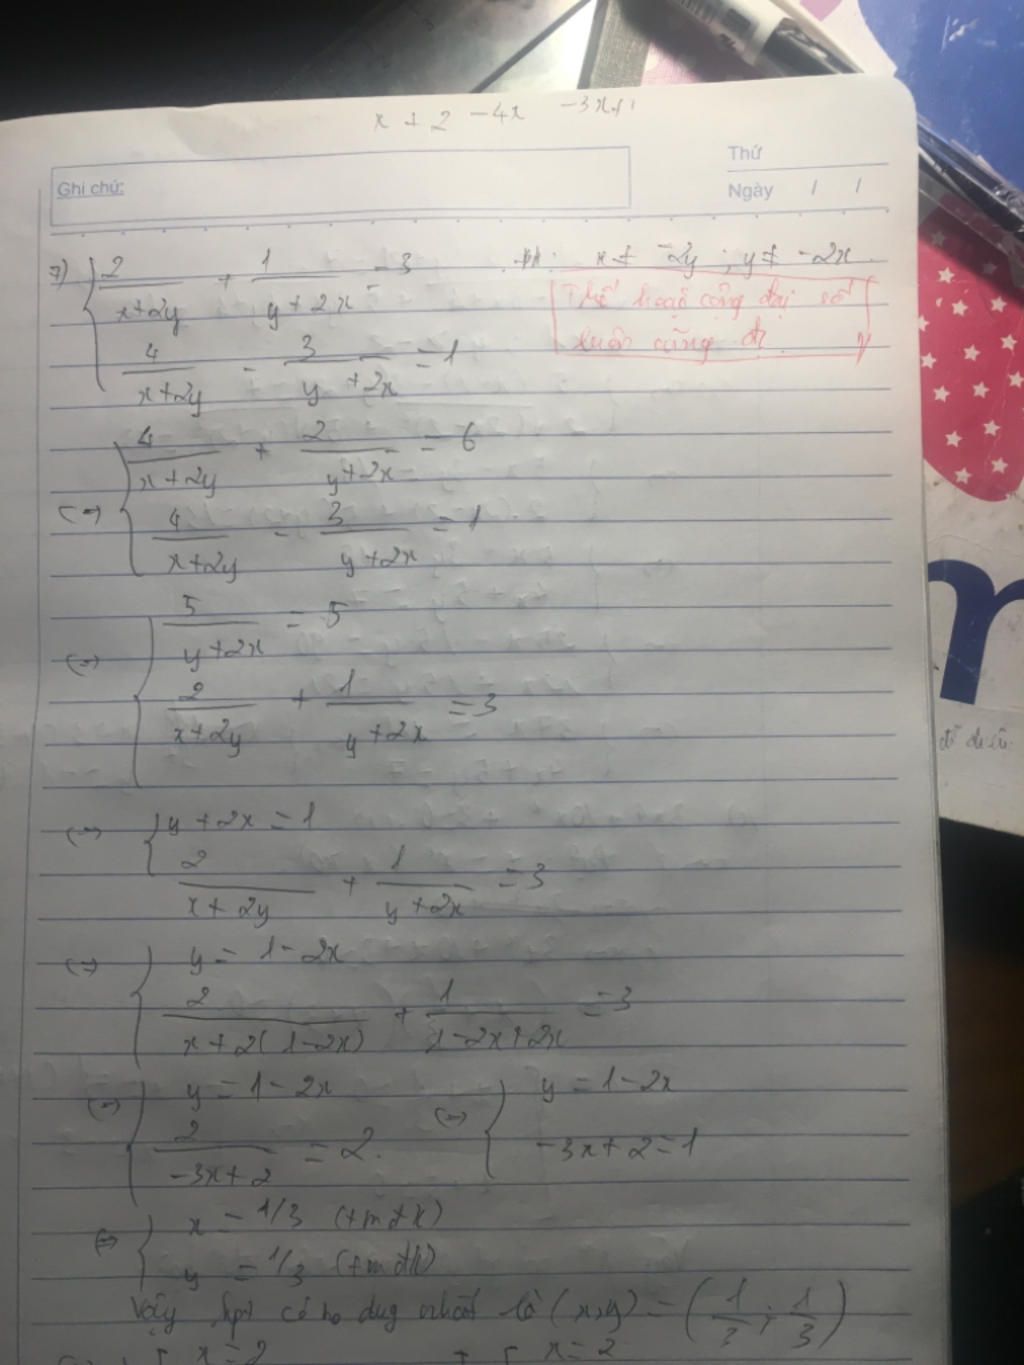 x + 2 - 4x - 3x+1
Thứ
Ghi chú:
Ngày / /
7) { 2/(x+2y) + 1/(y+2x) = 3 x ≠ -2y ; y ≠ -2x
Thế hoặc cộng đại số
luôn cũng đc
4/(x+2y) - 3/(y+2x) = 1
(=) { 4/(x+2y) + 2/(y+2x) = 6
4/(x+2y) - 3/(y+2x) = 1
(=) { 5/(y+2x) = 5
2/(x+2y) + 1/(y+2x) = 3
(=) { y+2x = 1
2/(x+2y) + 1/(y+2x) = 3
(=) { y = 1-2x
2/(x+2(1-2x)) + 1/(1-2x+2x) = 3
(=) { y = 1-2x (=) { y = 1-2x
2/(-3x+2) = 2. -3x+2=1
(=) { x = 1/3 (tmđk)
y = 1/3 (tmđk)
Vậy hpt có no duy nhất là (x,y) = (1/3 ; 1/3)
x = 2 x = 2
m